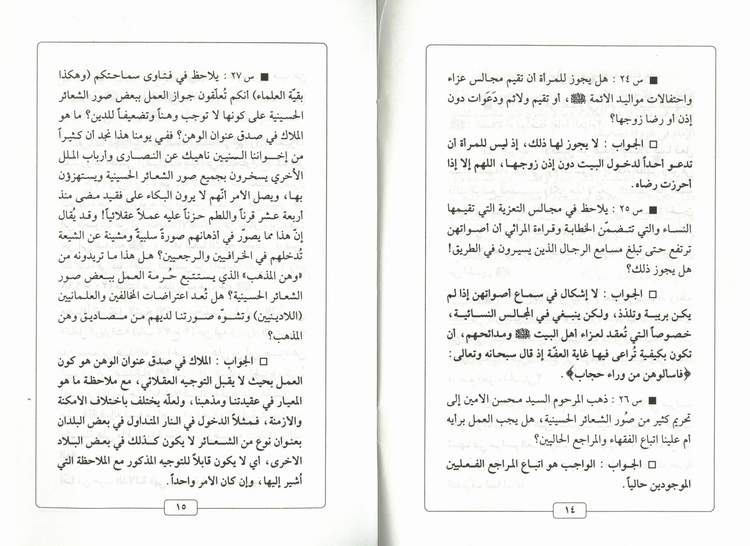 ■ س ٢٤ : هل يجوز للمرأة أن تقيم مجالس عزاء
واحتفالات مواليد الائمة ﷺ، أو تقيم ولائم ودَعَوات دون
إذن أو رضا زوجها؟
□ الجواب : لا يجوز لها ذلك، إذ ليس للمرأة أن
تدعو أحداً لدخول البيت دون إذن زوجها، اللهم إلا إذا
أحرزت رضاه.
■ س ٢٥ : يلاحظ في مجالس التعزية التي تقيمها
النساء والتي تتضمّن الخطابة وقراءة المراثي أن أصواتهن
ترتفع حتى تبلغ مسامع الرجال الذين يسيرون في الطريق!
هل يجوز ذلك؟
□ الجواب : لا إشكال في سماع أصواتهن إذا لم
يكن بريبة وتلذذ، ولكن ينبغي في المجالس النسائية،
خصوصاً التي تُعقد لعزاء أهل البيت ﷺ ومدائحهم، أن
تكون بكيفية تُراعى فيها غاية العفّة إذ قال سبحانه وتعالى:
﴿فاسألوهن من وراء حجاب﴾.
■ س ٢٦ : ذهب المرحوم السيد محسن الامين إلى
تحريم كثير من صُور الشعائر الحسينية، هل يجب العمل برأيه
أم علينا اتباع الفقهاء والمراجع الحاليين؟
□ الجواب : الواجب هو اتباع المراجع الفعليين
الموجودين حالياً.
١٤
■ س ٢٧ : يلاحظ في فتاوى سماحتكم (وهكذا
بقيّة العلماء) أنكم تُعلّقون جواز العمل ببعض صور الشعائر
الحسينية على كونها لا توجب وهناً وتضعيفاً للدين؟ ما هو
الملاك في صدق عنوان الوهن؟ ففي يومنا هذا نجد أن كثيراً
من إخواننا السنيين ناهيك عن النصارى وأرباب الملل
الأخرى يسخرون بجميع صور الشعائر الحسينية ويستهزؤن
بها، ويصل الامر أنّهم لا يرون البكاء على فقيد مضى منذ
أربعة عشر قرناً واللطم حزناً عليه عملاً عقلائياً! وقد يُقال
إنّ هذا مما يصوّر في أذهانهم صورةً سلبيةً ومشينة عن الشيعة
تُدخلهم في الخرافيين والرجعيين؟ هل هذا ما تريدونه من
«وهن المذهب» الذي يستتبع حُرمة العمل ببعض صور
الشعائر الحسينية؟ هل تُعد اعتراضات المخالفين والعلمانيين
(اللادينيين) وتشوّه صورتنا لديهم من مصاديق وهن
المذهب؟
□ الجواب : الملاك في صدق عنوان الوهن هو كون
العمل بحيث لا يقبل التوجيه العقلائي، مع ملاحظة ما هو
المعيار في عقيدتنا ومذهبنا، ولعلّه يختلف باختلاف الامكنة
والازمنة، فمثلاً الدخول في النار المتداول في بعض البلدان
بعنوان نوع من الشعائر لا يكون كذلك في بعض البلاد
الاخرى، أي لا يكون قابلاً للتوجيه المذكور مع الملاحظة التي
أشير إليها، وإن كان الامر واحداً.
١٥